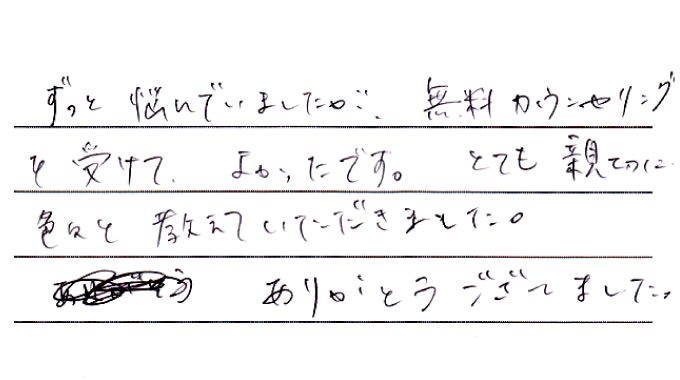 ずっと 悩んでいましたが、 無料カウンセリング
を 受けて、 よかったです。 とても 親切に
色々と 教えていただきました。
ありがとうございました。